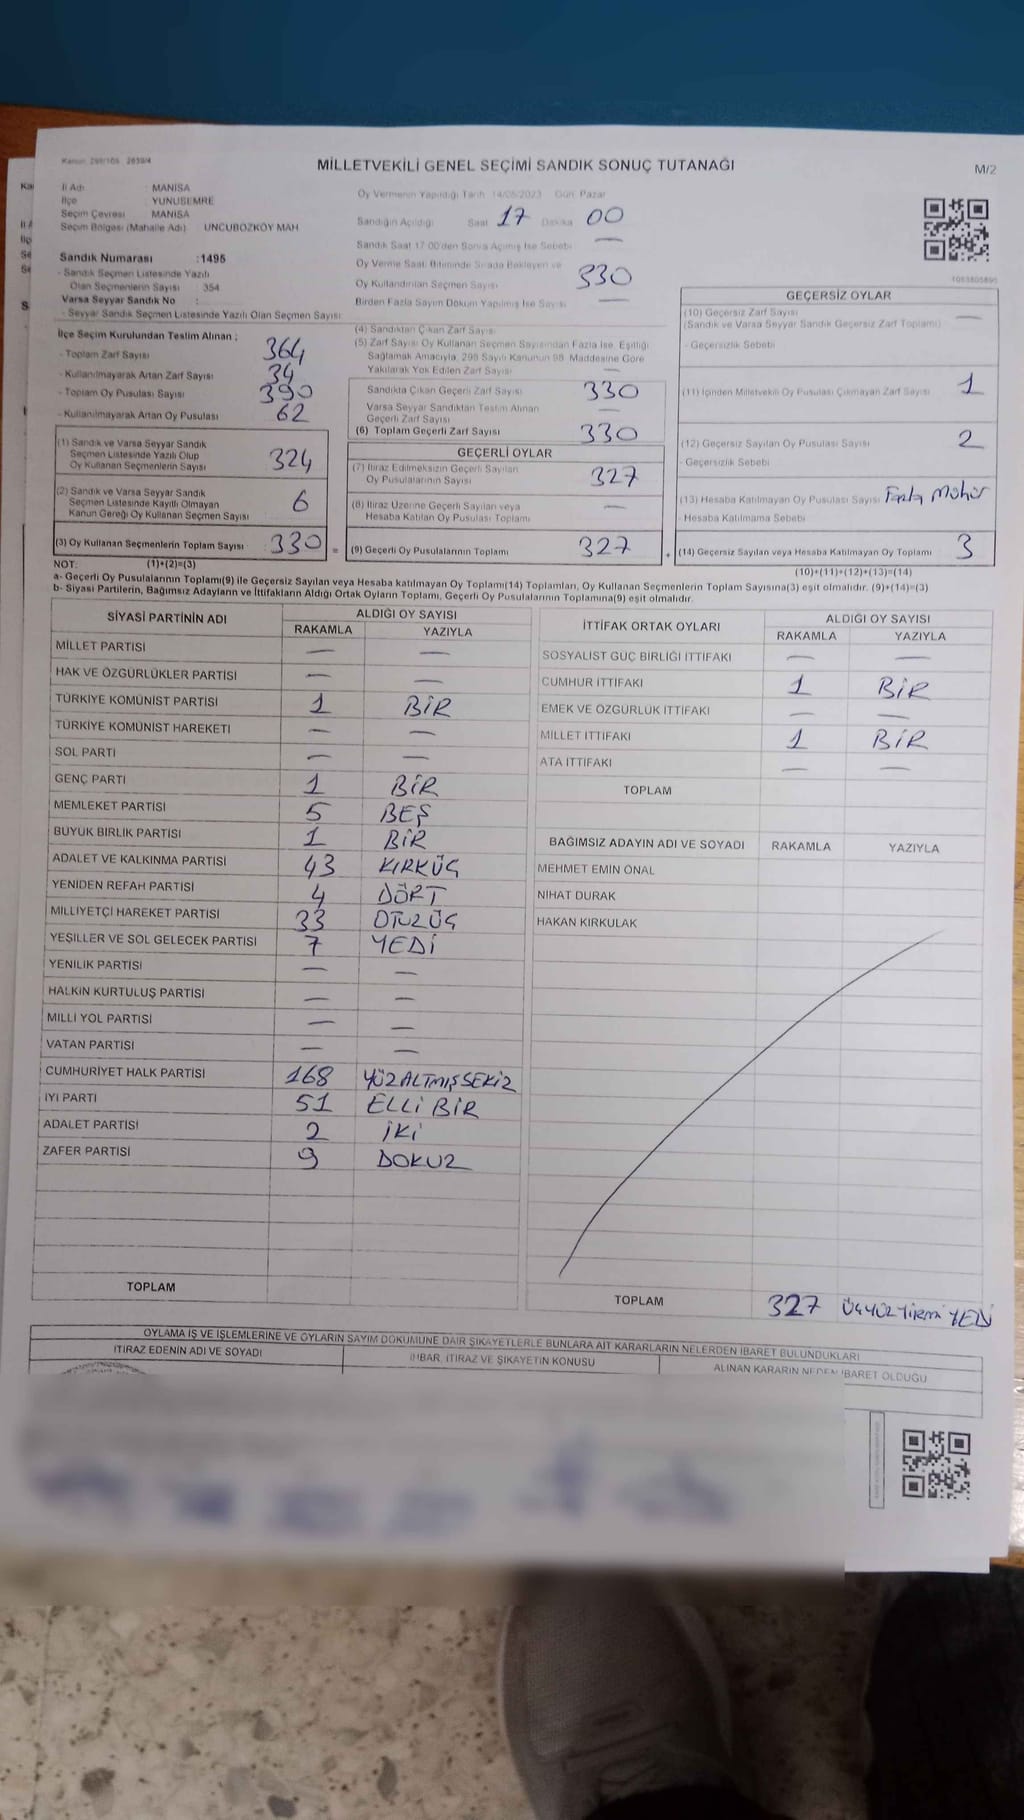 MİLLETVEKİLİ GENEL SEÇİMİ SANDIK SONUÇ TUTANAĞI
M/2
İl Adı : MANİSA
İlçe : YUNUSEMRE
Seçim Çevresi : MANİSA
Seçim Bölgesi (Mahalle Adı) : UNCUBOZKÖY MAH
Sandık Numarası :1495
- Sandık Seçmen Listesinde Yazılı
Olan Seçmenlerin Sayısı : 354
Varsa Seyyar Sandık No :
- Seyyar Sandık Seçmen Listesinde Yazılı Olan Seçmen Sayısı:
Oy Vermenin Yapıldığı Tarih 14/05/2023 Gün Pazar
Sandığın Açıldığı Saat 17 Dakika 00
Sandık Saat 17:00'den Sonra Açılmış İse Sebebi —
Oy Verme Saati Bitiminde Sırada Bekleyen ve
Oy Kullandırılan Seçmen Sayısı 330
Birden Fazla Sayım Döküm Yapılmış İse Sayısı —
İlçe Seçim Kurulundan Teslim Alınan ;
- Toplam Zarf Sayısı 364
- Kullanılmayarak Artan Zarf Sayısı 34
- Toplam Oy Pusulası Sayısı 390
- Kullanılmayarak Artan Oy Pusulası 62
(1) Sandık ve Varsa Seyyar Sandık
Seçmen Listesinde Yazılı Olup
Oy Kullanan Seçmenlerin Sayısı 324
(2) Sandık ve Varsa Seyyar Sandık
Seçmen Listesinde Kayıtlı Olmayan
Kanun Gereği Oy Kullanan Seçmen Sayısı 6
(3) Oy Kullanan Seçmenlerin Toplam Sayısı 330 =
(4) Sandıktan Çıkan Zarf Sayısı
(5) Zarf Sayısı Oy Kullanan Seçmen Sayısından Fazla İse, Eşitliği
Sağlamak Amacıyla, 298 Sayılı Kanunun 98. Maddesine Göre
Yakılarak Yok Edilen Zarf Sayısı —
Sandıkta Çıkan Geçerli Zarf Sayısı 330
Varsa Seyyar Sandıktan Teslim Alınan
Geçerli Zarf Sayısı —
(6) Toplam Geçerli Zarf Sayısı 330
GEÇERLİ OYLAR
(7) İtiraz Edilmeksizin Geçerli Sayılan
Oy Pusulalarının Sayısı 327
(8) İtiraz Üzerine Geçerli Sayılan veya
Hesaba Katılan Oy Pusulası Toplamı —
(9) Geçerli Oy Pusulalarının Toplamı 327 +
GEÇERSİZ OYLAR
(10) Geçersiz Zarf Sayısı —
(Sandık ve Varsa Seyyar Sandık Geçersiz Zarf Toplamı)
- Geçersizlik Sebebi
(11) İçinden Milletvekili Oy Pusulası Çıkmayan Zarf Sayısı 1
(12) Geçersiz Sayılan Oy Pusulası Sayısı 2
- Geçersizlik Sebebi
(13) Hesaba Katılmayan Oy Pusulası Sayısı Fazla Mühür
- Hesaba Katılmama Sebebi
(14) Geçersiz Sayılan veya Hesaba Katılmayan Oy Toplamı 3
NOT: (1)+(2)=(3) (10)+(11)+(12)+(13)=(14)
a- Geçerli Oy Pusulalarının Toplamı(9) ile Geçersiz Sayılan veya Hesaba katılmayan Oy Toplamı(14) Toplamları, Oy Kullanan Seçmenlerin Toplam Sayısına(3) eşit olmalıdır. (9)+(14)=(3)
b- Siyasi Partilerin, Bağımsız Adayların ve İttifakların Aldığı Ortak Oyların Toplamı, Geçerli Oy Pusulalarının Toplamına(9) eşit olmalıdır.
SİYASİ PARTİNİN ADI ALDIĞI OY SAYISI
RAKAMLA YAZIYLA
MİLLET PARTİSİ — —
HAK VE ÖZGÜRLÜKLER PARTİSİ — —
TÜRKİYE KOMÜNİST PARTİSİ 1 BİR
TÜRKİYE KOMÜNİST HAREKETİ — —
SOL PARTİ — —
GENÇ PARTİ 1 BİR
MEMLEKET PARTİSİ 5 BEŞ
BÜYÜK BİRLİK PARTİSİ 1 BİR
ADALET VE KALKINMA PARTİSİ 43 KIRKÜÇ
YENİDEN REFAH PARTİSİ 4 DÖRT
MİLLİYETÇİ HAREKET PARTİSİ 33 OTUZÜÇ
YEŞİLLER VE SOL GELECEK PARTİSİ 7 YEDİ
YENİLİK PARTİSİ — —
HALKIN KURTULUŞ PARTİSİ — —
MİLLİ YOL PARTİSİ — —
VATAN PARTİSİ — —
CUMHURİYET HALK PARTİSİ 168 YÜZALTMIŞSEKİZ
İYİ PARTİ 51 ELLİ BİR
ADALET PARTİSİ 2 İKİ
ZAFER PARTİSİ 9 DOKUZ
TOPLAM
İTTİFAK ORTAK OYLARI ALDIĞI OY SAYISI
RAKAMLA YAZIYLA
SOSYALİST GÜÇ BİRLİĞİ İTTİFAKI — —
CUMHUR İTTİFAKI 1 BİR
EMEK VE ÖZGÜRLÜK İTTİFAKI — —
MİLLET İTTİFAKI 1 BİR
ATA İTTİFAKI — —
TOPLAM
BAĞIMSIZ ADAYIN ADI VE SOYADI RAKAMLA YAZIYLA
MEHMET EMİN ÖNAL
NİHAT DURAK
HAKAN KIRKULAK
TOPLAM 327 ÜÇYÜZYİRMİ YEDİ
OYLAMA İŞ VE İŞLEMLERİNE VE OYLARIN SAYIM DÖKÜMÜNE DAİR ŞİKAYETLERLE BUNLARA AİT KARARLARIN NELERDEN İBARET BULUNDUKLARI
İTİRAZ EDENİN ADI VE SOYADI
İHBAR, İTİRAZ VE ŞİKAYETİN KONUSU
ALINAN KARARIN NEDEN İBARET OLDUĞU